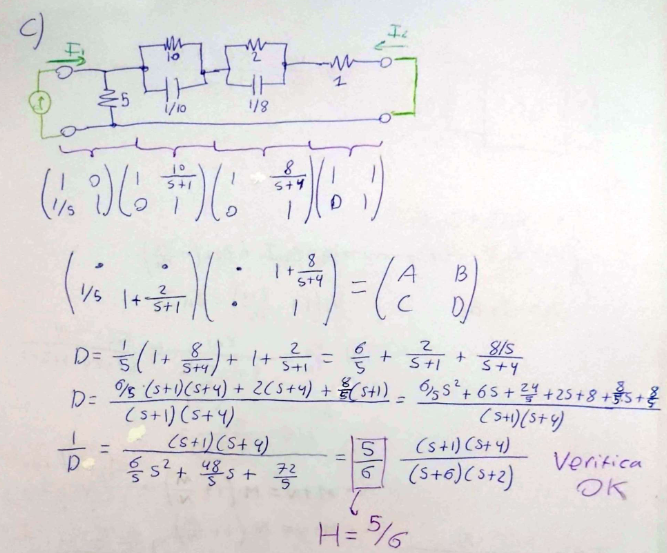 C)
I₁ 10 2 I₂
1
5 1/10 1/8 1
(1 0 1/5 1) (1 10/(s+1) 0 1) (1 8/(s+4) 0 1) (1 1 0 1)
(· · 1/5 1+2/(s+1)) (· 1+8/(s+4) · 1) = (A B C D)
D = 1/5 (1 + 8/(s+4)) + 1 + 2/(s+1) = 6/5 + 2/(s+1) + (8/5)/(s+4)
D = (6/5·(s+1)(s+4) + 2(s+4) + 8/5(s+1))/((s+1)(s+4)) = (6/5s² + 6s + 24/5 + 2s + 8 + 8/5s + 8/5)/((s+1)(s+4))
1/D = ((s+1)(s+4))/(6/5 s² + 48/5 s + 72/5) = 5/6 ((s+1)(s+4))/((s+6)(s+2)) Verifica
OK
H = 5/6